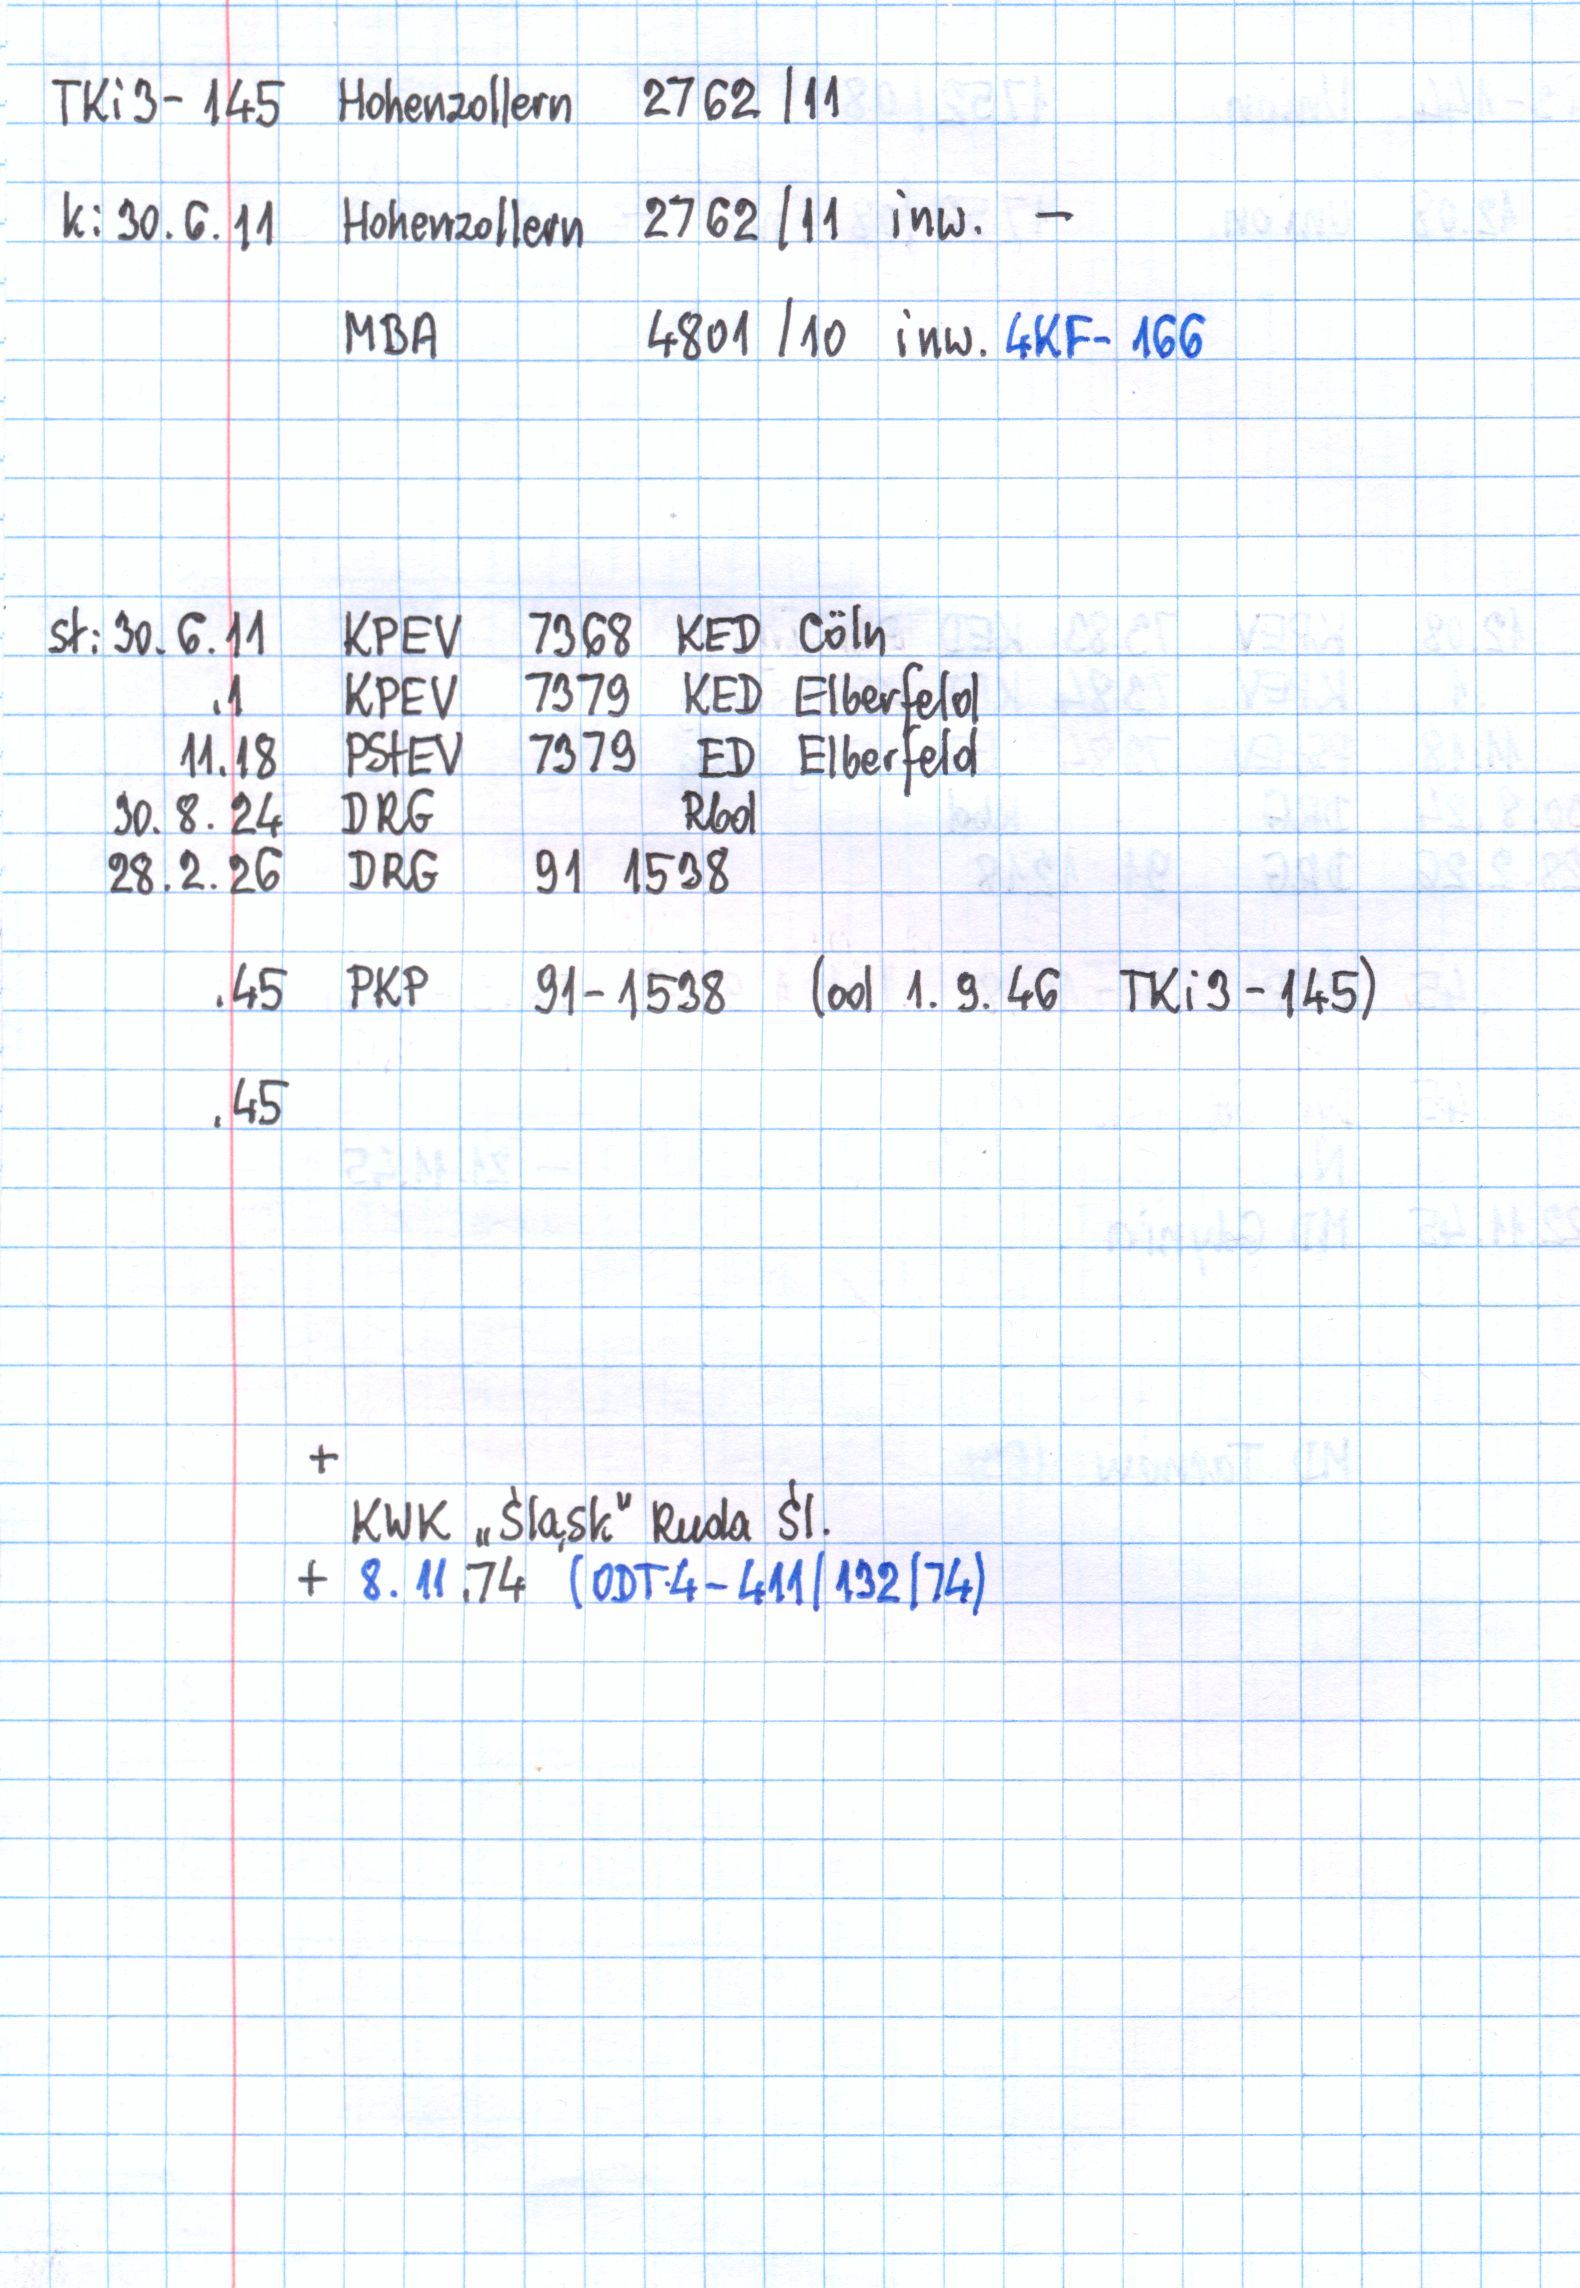 TKi3-145 Hohenzollern 2762/11
k: 30.6.11 Hohenzollern 2762/11 inw. -
MBA 4801/10 inw. 4KF-166
st: 30.6.11 KPEV 7368 KED Cöln
.1 KPEV 7379 KED Elberfeld
11.18 PStEV 7379 ED Elberfeld
30.8.24 DRG Rbd
28.2.26 DRG 91 1538
.45 PKP 91-1538 (od 1.9.46 TKi3-145)
.45
+
KWK „Śląsk" Ruda Śl.
+ 8.11.74 (ODT.4-411/132/74)